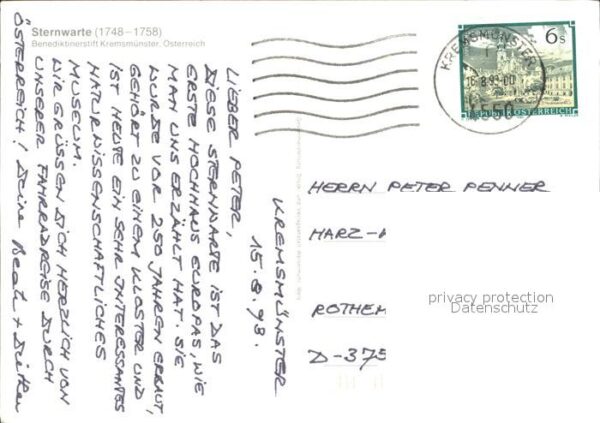 Sternwarte (1748–1758)
Benediktinerstift Kremsmünster, Österreich
KREMSMÜNSTER
15.8.98.
LIEBER PETER,
DIESE STERNWARTE IST DAS
ERSTE HOCHHAUS EUROPAS, WIE
MAN UNS ERZÄHLT HAT. SIE
WURDE VOR 250 JAHREN ERBAUT,
GEHÖRT ZU EINEM KLOSTER UND
IST HEUTE EIN SEHR INTERESSANTES
NATURWISSENSCHAFTLICHES
MUSEUM.
WIR GRÜSSEN DICH HERZLICH VON
UNSERER FAHRRADREISE DURCH
ÖSTERREICH! Deine Beate + Dieter
6 S
REPUBLIK ÖSTERREICH
KREMSMÜNSTER
4550
HERRN PETER PENNER
HARZ-
ROTHEM
D-375
privacy protection
Datenschutz